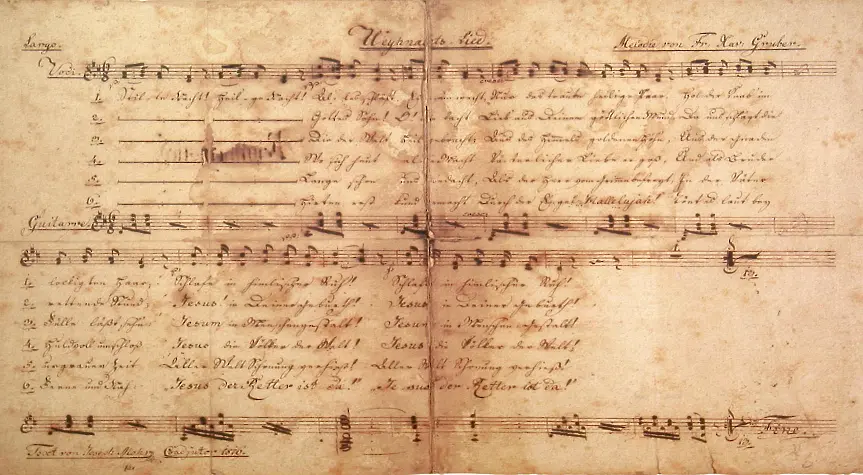 Largo. Weyhnachts-Lied. Melodie von Fr. Xav. Gruber.
Voci.
1. Stille Nacht! Heilige Nacht! Alles schläft. Einsam wacht. Nur das traute heilige Paar. Holder Knab' im
2. Gottes Sohn! O! lacht Lieb' aus Deinem göttlichen Mund, Da uns schlägt die
3. Die der Welt Heil gebracht; Aus des Himmels goldenen Höhn, Aus der Gnaden
4. Wo sich heut alle Macht Väterlicher Liebe ergoß, Und als Bruder
5. Lange schon uns bedacht, Als der Herr vom Grimme befreyt, In der Väter
6. Hirten erst kund gemacht Durch der Engel Hallelujah! Tönt es laut bey
Guitarre.
1. lockigten Haar; Schlafe in himlischer Ruh! Schlafe in himlischer Ruh!
2. rettende Stund. Jesus! in Deiner Geburth! Jesus in Deiner Geburth!
3. Fülle läßt sehn Jesum in Menschengestalt! Jesum in Menschengestalt!
4. Huldvoll umschloß Jesus die Völker der Welt! Jesus die Völker der Welt!
5. urgrauer Zeit Aller Welt Schonung verhieß! Aller Welt Schonung verhieß!
6. Ferne und Nah: Jesus der Retter ist da! Jesus der Retter ist da!
Fine.
Text von Joseph Mohr Coadjutor 1816.